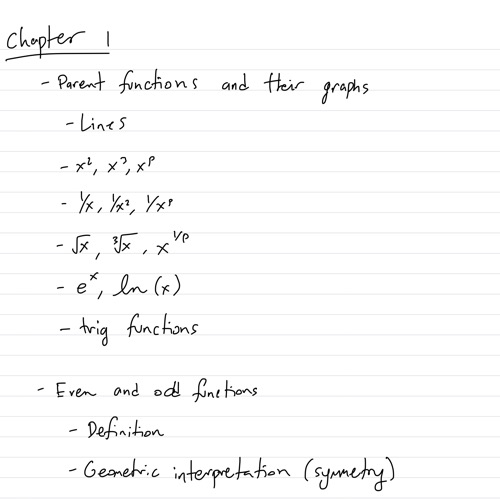 Chapter 1
- Parent functions and their graphs
- Lines
- x², x³, xᵖ
- 1/x, 1/x², 1/xᵖ
- √x, ∛x, x^(1/p)
- eˣ, ln(x)
- trig functions
- Even and odd functions
- Definition
- Geometric interpretation (symmetry)